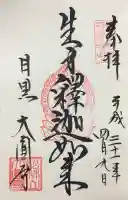 奉拝
平成三十一年
四月九日
生身釈迦如来
目黒
大圓寺